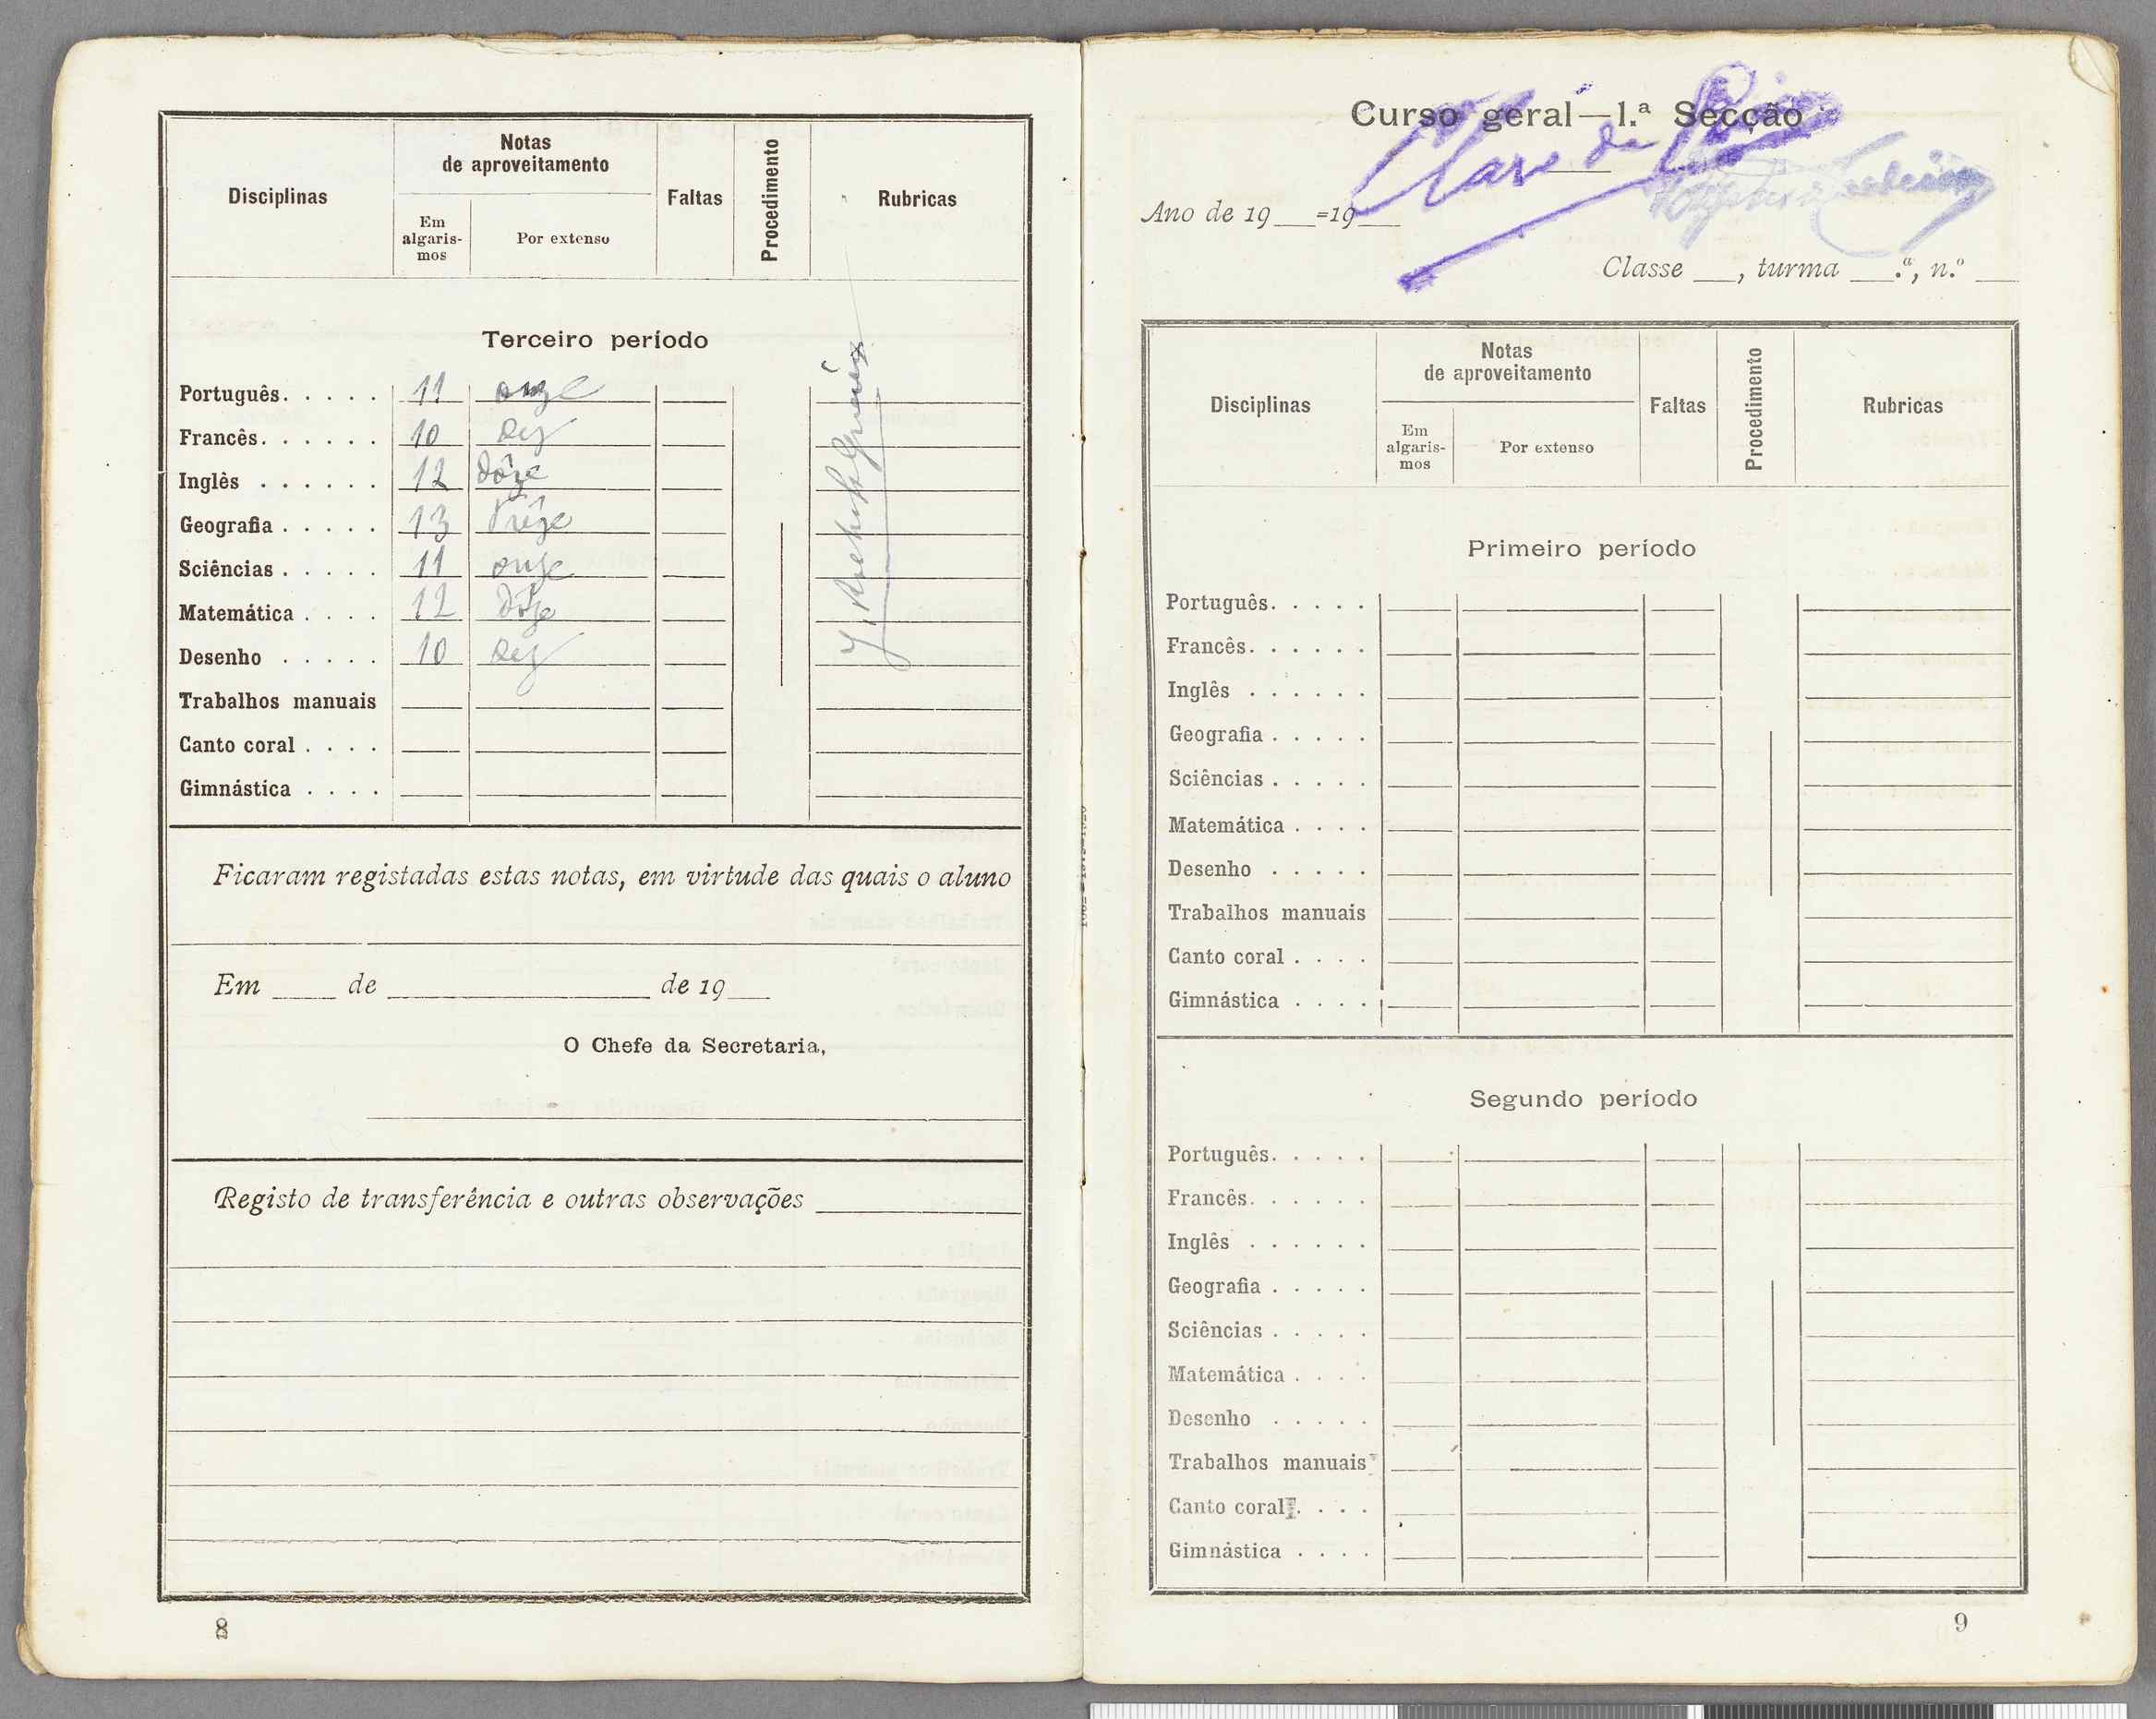 Disciplinas
Notas
de aproveitamento
Em
algaris-
mos
Por extenso
Faltas
Procedimento
Rubricas
Terceiro período
Português. . . . . 11 onze
Francês. . . . . . 10 Dez
Inglês . . . . . . 12 Dôze
Geografia . . . . . 13 Trêze
Sciências . . . . . 11 onze
Matemática . . . . 12 Dôze
Desenho . . . . . 10 Dez
Trabalhos manuais
Canto coral . . . .
Gimnástica . . . .
Ficaram registadas estas notas, em virtude das quais o aluno
Em ____ de ____ de 19__
O Chefe da Secretaria,
Registo de transferência e outras observações
8
Curso geral—1.ª Secção
Ano de 19__=19__
Classe __, turma __.ª, n.º __
Disciplinas
Notas
de aproveitamento
Em
algaris-
mos
Por extenso
Faltas
Procedimento
Rubricas
Primeiro período
Português. . . . .
Francês. . . . . .
Inglês . . . . . .
Geografia . . . . .
Sciências . . . . .
Matemática . . . .
Desenho . . . . .
Trabalhos manuais
Canto coral . . . .
Gimnástica . . . .
Segundo período
Português. . . . .
Francês. . . . . .
Inglês . . . . . .
Geografia . . . . .
Sciências . . . . .
Matemática . . . .
Desenho . . . . .
Trabalhos manuais
Canto coral . . . .
Gimnástica . . . .
9